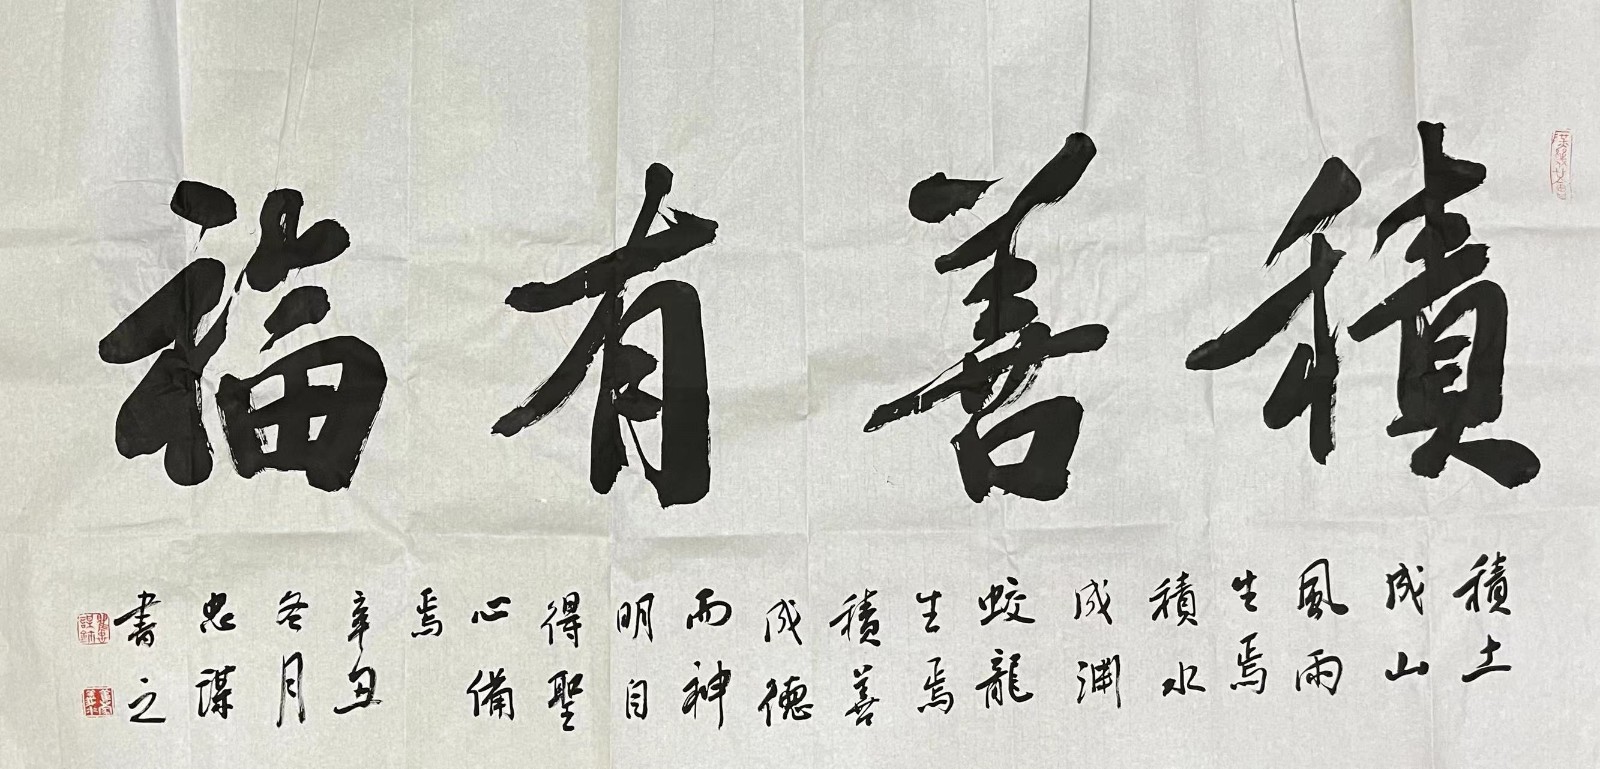 積善有福
積土
成山
風雨
生焉
積水
成渊
蛟龍
生焉
積善
成德
而神
明自
得聖
心備
焉
辛丑
冬月
忠謀
書之